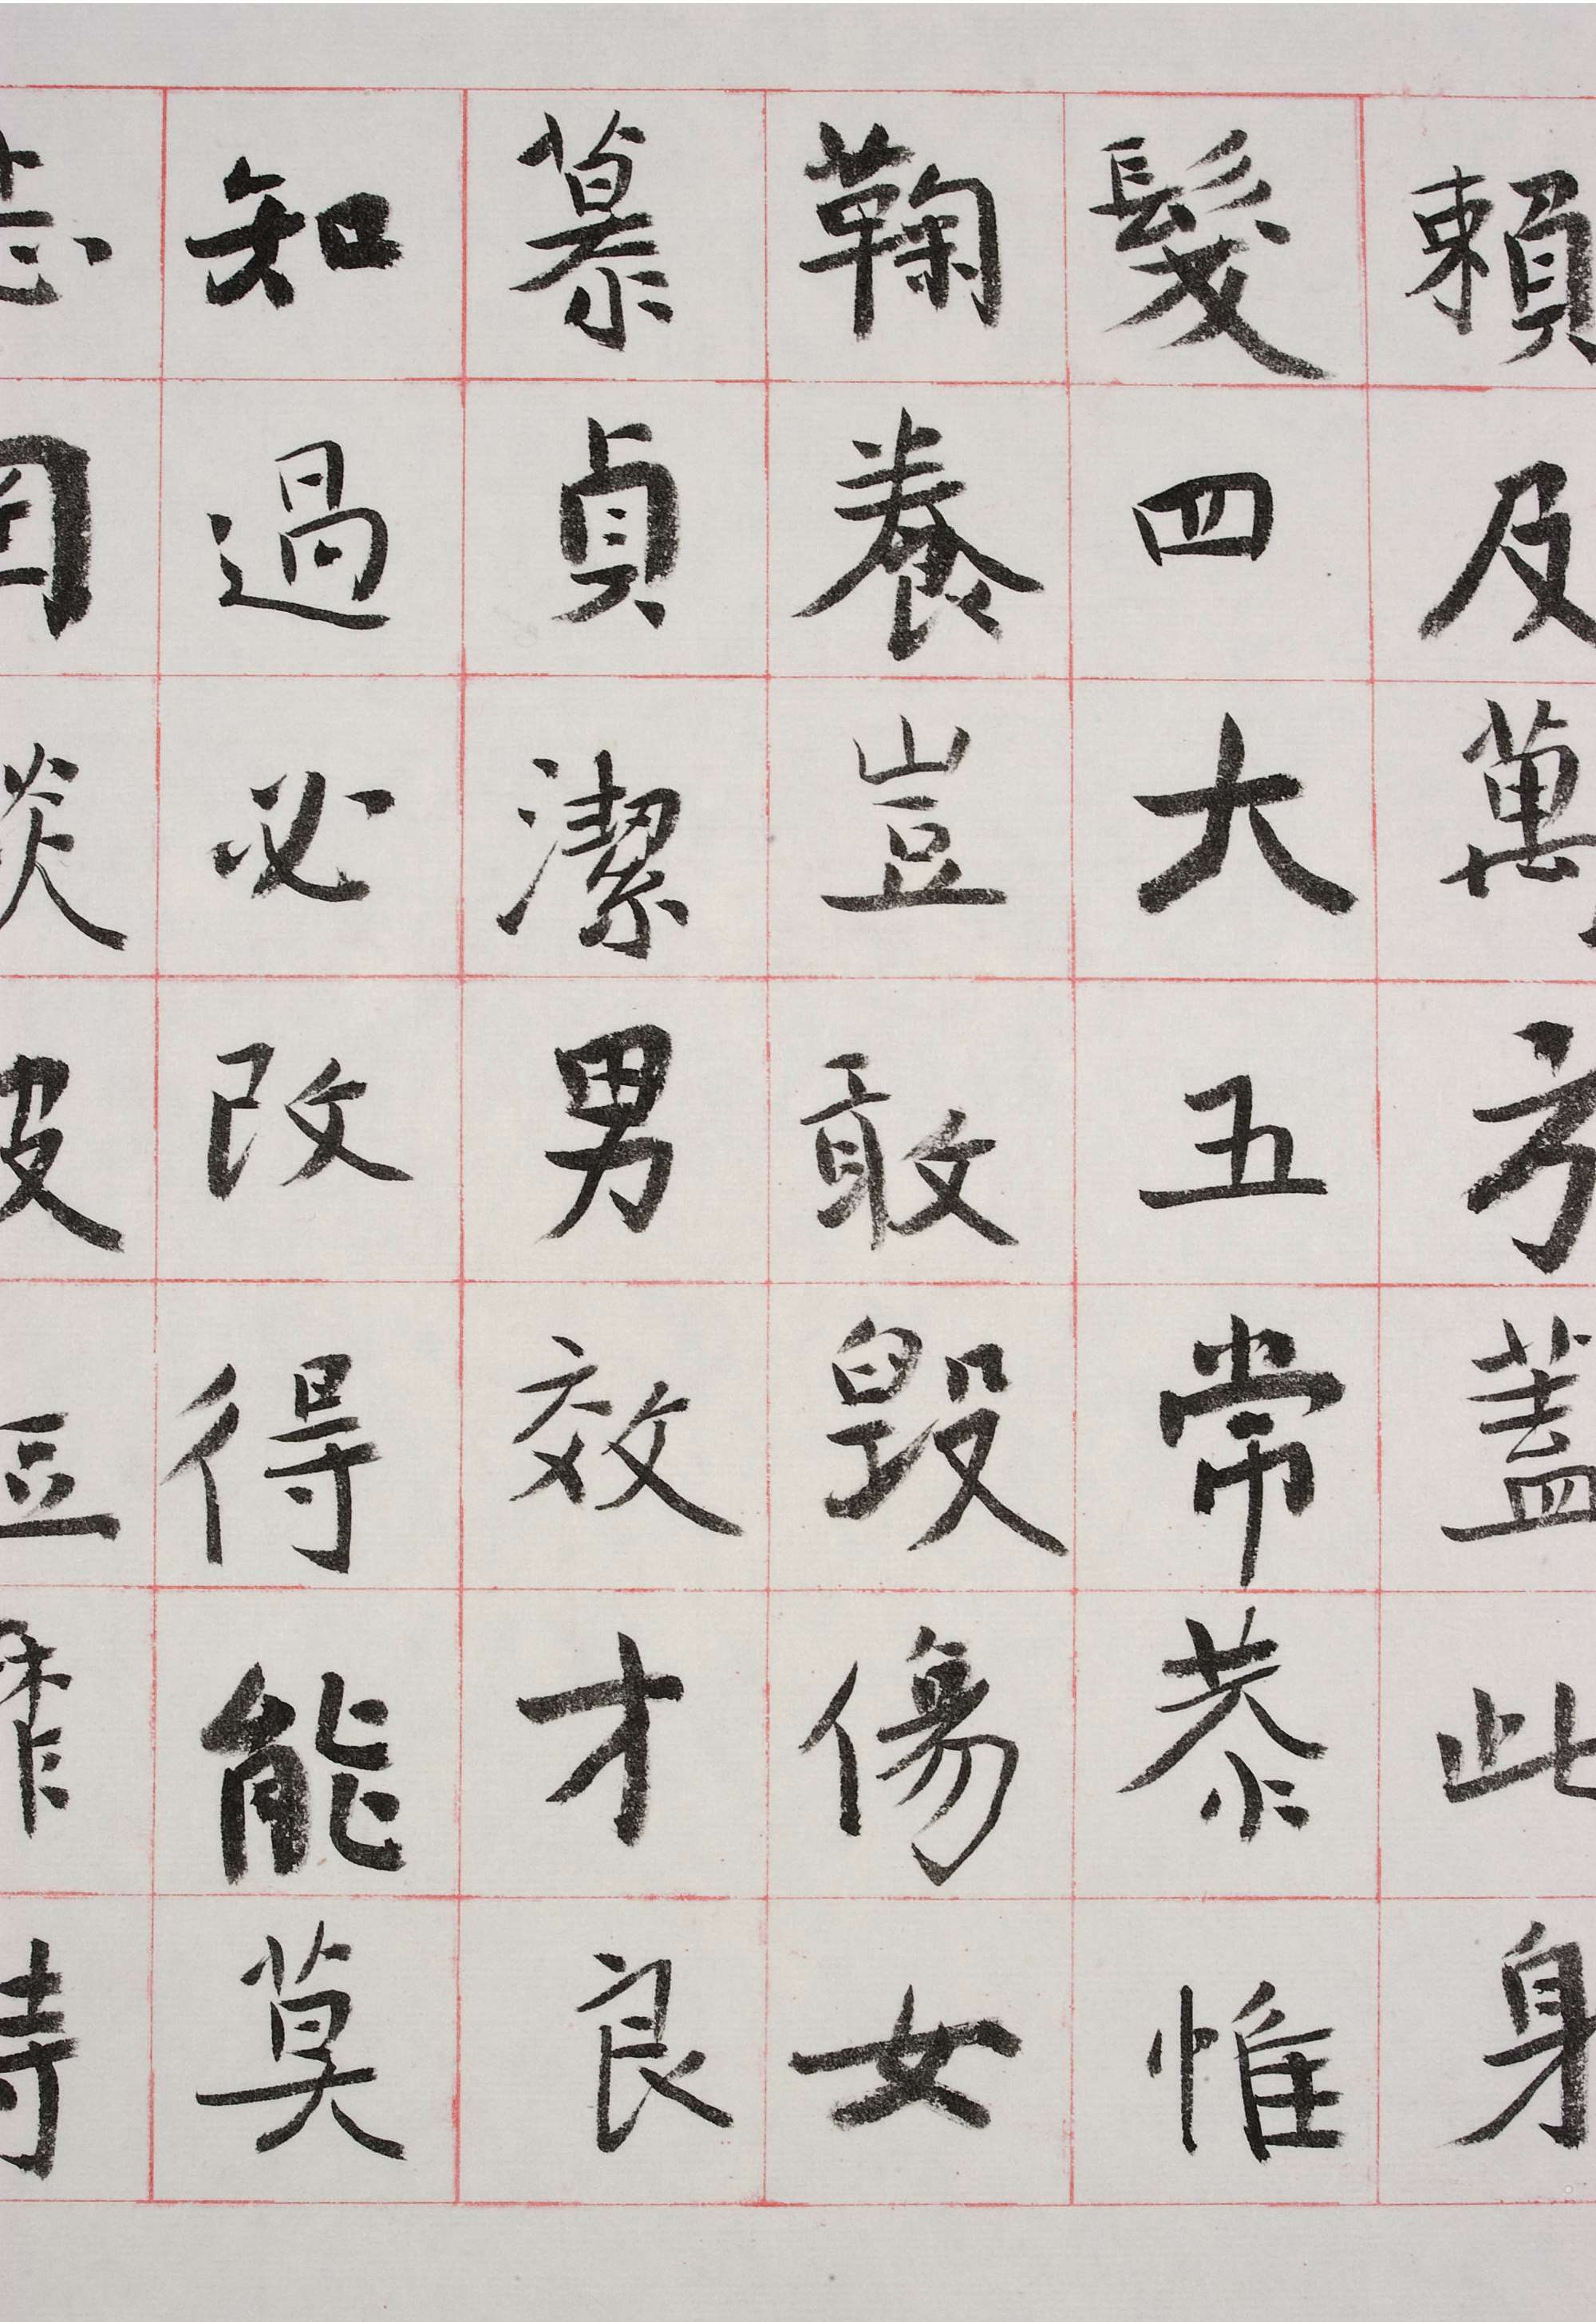 賴及萬方蓋此身
髮四大五常恭惟
鞠養豈敢毀傷女
慕貞潔男效才良
知過必改得能莫